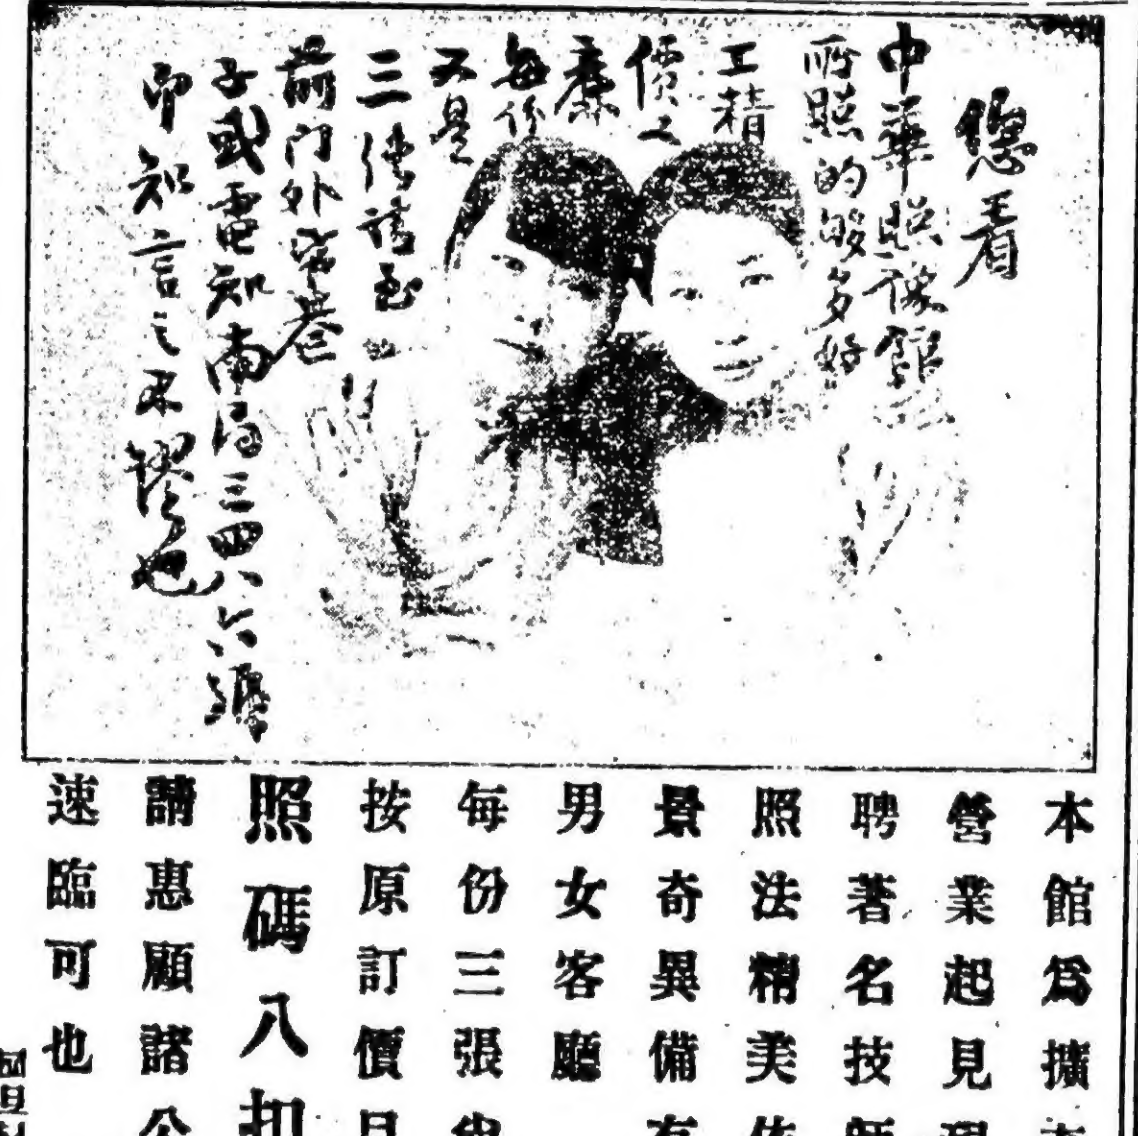 您看
中華照像館
所照的够多好
工精
價之
廉
每份
又是
三
前门外
子或電知南局三四八六號
即知言之不謬也
本館爲擴
營業起見
聘著名技師
照法精美佈
景奇異備有
男女客廳
每份三張
按原訂價
照碼八扣
請惠顧諸公
速臨可也